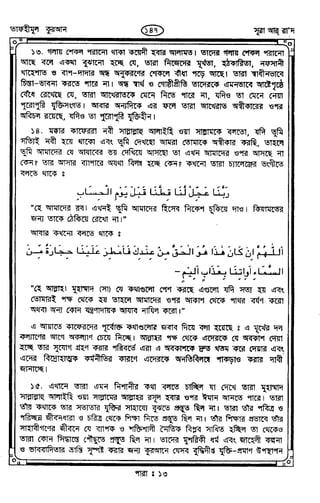 তাফহীমুল কুরআন
১৪৭
সূরা আর রা'দ
১৩. গলায় শেকল পরানো থাকা কয়েদী হবার আলামত। তাদের গলায় শেকল পরানো
আছে বলে একথা বুঝানো হচ্ছে যে, তারা নিজেদের মূর্খতা, হঠকারিতা, নফসানী
খাহেশাত ও বাপ-দাদার অন্ধ অনুকরণের শেকলে বাঁধা পড়ে আছে। তারা স্বাধীনভাবে
চিন্তা-ভাবনা করতে পারে না। অন্ধ স্বার্থ ও গোষ্ঠীপ্রীতি তাদেরকে এমনভাবে আষ্টেপৃষ্ঠে
বেঁধে রেখেছে যে, তারা আখেরাতকে মেনে নিতে পারে না, যদিও তা মেনে নেয়া
পুরোপুরি যুক্তিসংগত। আবার অন্যদিকে এর ফলে তারা আখেরাত অস্বীকারের ওপর
অবিচল রয়েছে, যদিও তা পুরোপুরি যুক্তিহীন।
১৪. মক্কার কাফেররা নবী সাল্লাল্লাহু আলাইহি ওয়া সাল্লামকে বলতো, যদি তুমি
সত্যিই নবী হয়ে থাকো এবং তুমি দেখছো আমরা তোমাকে অস্বীকার করছি, তাহলে
তুমি আমাদের যে আযাবের ভয় দেখিয়ে আসছো তা এখন আমাদের ওপর আসছে না
কেন? তার আসার ব্যাপারে অযথা বিলম্ব হচ্ছে কেন? কখনো তারা চ্যালেঞ্জের ভংগীতে
বলতে থাকে :
رَبَّنَا عَجِّلْ لَّنَا قِطَّنَا قَبْلَ يَوْمِ الْحِسَابِ
"হে আমাদের রব! এখনই তুমি আমাদের হিসেব নিকেশ চুকিয়ে দাও। কিয়ামতের
জন্য তাকে ঠেকিয়ে রেখো না।"
আবার কখনো বলতে থাকে :
اَللّٰهُمَّ اِنْ كَانَ هٰذَا هُوَ الْحَقَّ مِنْ عِنْدِكَ فَاَمْطِرْ عَلَيْنَا حِجَارَةً مِّنَ
السَّمَاءِ اَوِائْتِنَا بِعَذَابٍ اَلِيْمٍ -
"হে আল্লাহ! মুহাম্মাদ (সা) যে কথাগুলো পেশ করছে এগুলো যদি সত্য হয় এবং
তোমারই পক্ষ থেকে হয় তাহলে আমাদের ওপর আকাশ থেকে পাথর বর্ষণ করো
অথবা অন্য কোন যন্ত্রণাদায়ক আযাব নাযিল করো।"
এ আয়াতে কাফেরদের পূর্বোক্ত কথাগুলোর জবাব দিয়ে বলা হয়েছে : এ মূর্খের দল
কল্যাণের আগে অকল্যাণ চেয়ে নিচ্ছে। আল্লাহর পক্ষ থেকে এদেরকে যে অবকাশ দেয়া
হচ্ছে তার সুযোগ গ্রহণ করার পরিবর্তে এরা এ অবকাশকে দ্রুত খতম করে দেয়ার এবং
এদের বিদ্রোহাত্মক কর্মনীতির কারণে এদেরকে অনতিবিলম্বে পাকড়াও করার দাবী
জানাচ্ছে।
১৫. এখানে তারা এমন নিশানীর কথা বলতে চাচ্ছিল যা দেখে তারা মুহাম্মাদ
সাল্লাল্লাহু আলাইহি ওয়া সাল্লামের আল্লাহর রসূল হবার ওপর ঈমান আনতে পারে। তারা
পারা : ১৩